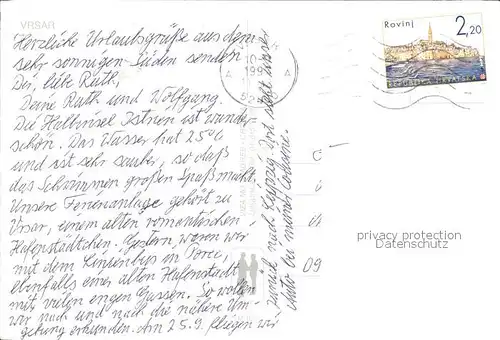 VRSAR
Herzliche Urlaubsgrüße aus dem
sehr sonnigen Süden senden
Dir, liebe Ruth,
Deine Ruth und Wolfgang.
Die Halbinsel Istrien ist wunder-
schön. Das Wasser hat 25°C
und ist sehr sauber, so daß
das Schwimmen großen Spaß macht.
Unsere Ferienanlage gehört zu
Vrsar, einem alten romantischen
Hafenstädtchen. Gestern waren wir
mit dem Linienbus in Porec,
ebenfalls eine alte Hafenstadt
mit vielen engen Gassen. So wollen
wir nach und nach die nähere Um-
gebung erkunden. Am 25.9. fliegen wir
zurück nach Leipzig. Dort steht unser
Auto bei meiner Cousine.
Rovinj
2,20
REPUBLIKA HRVATSKA
privacy protection
Datenschutz
09